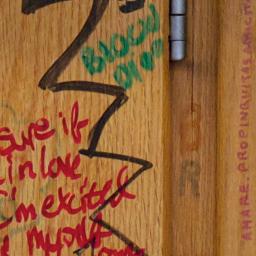 BLOOD
sure if
in love
I'm excited
myself
AMARE. PROPINQUITAS AMICIT